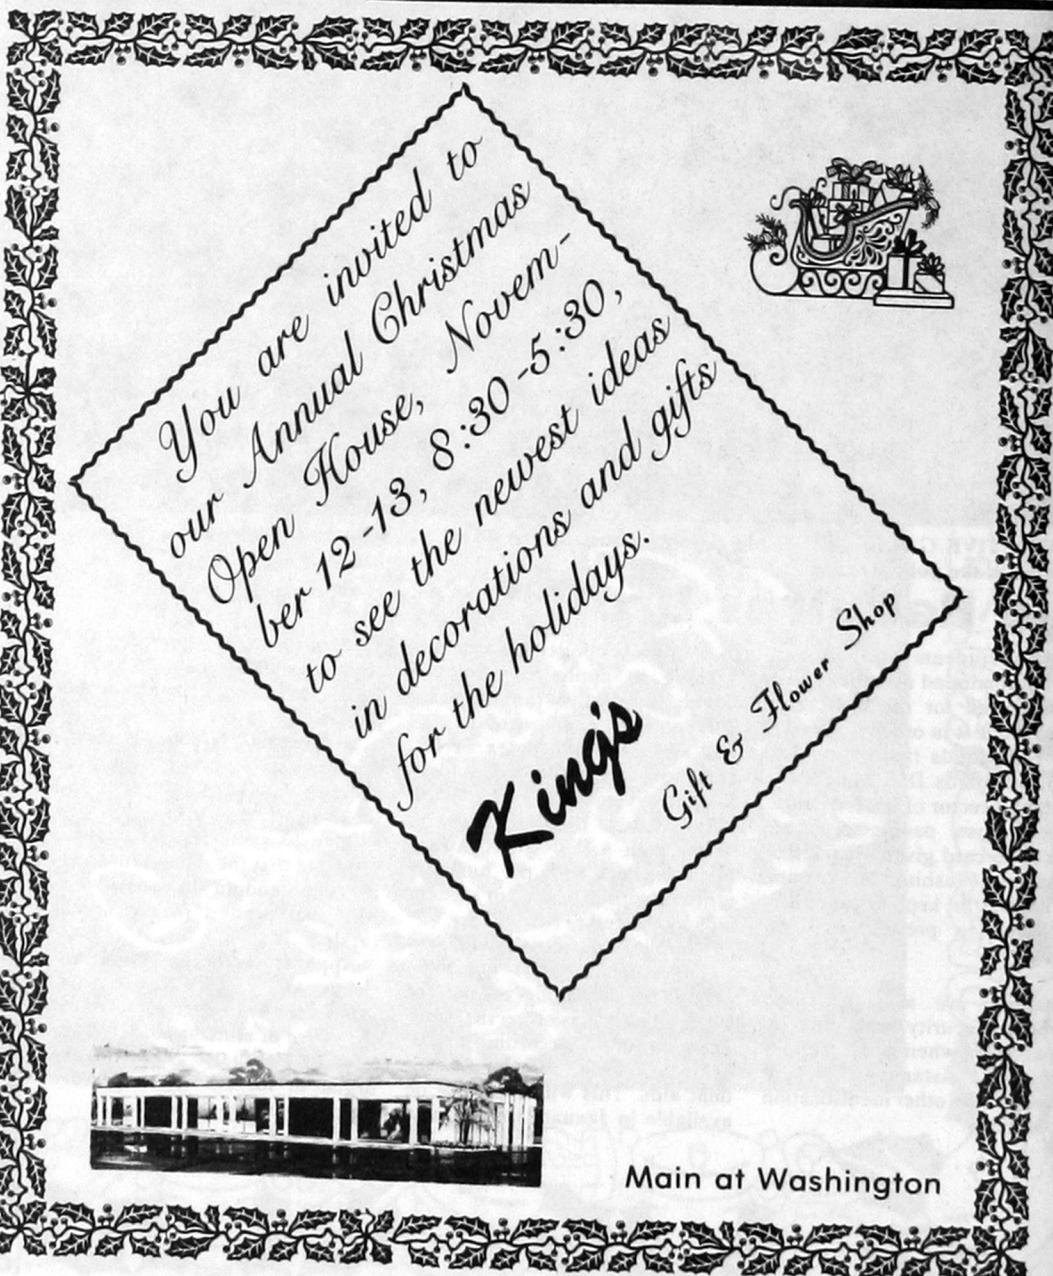 You are invited to
our Annual Christmas
Open House, Novem-
ber 12-13, 8:30-5:30,
to see the newest ideas
in decorations and gifts
for the holidays.
King's
Gift & Flower Shop
Main at Washington